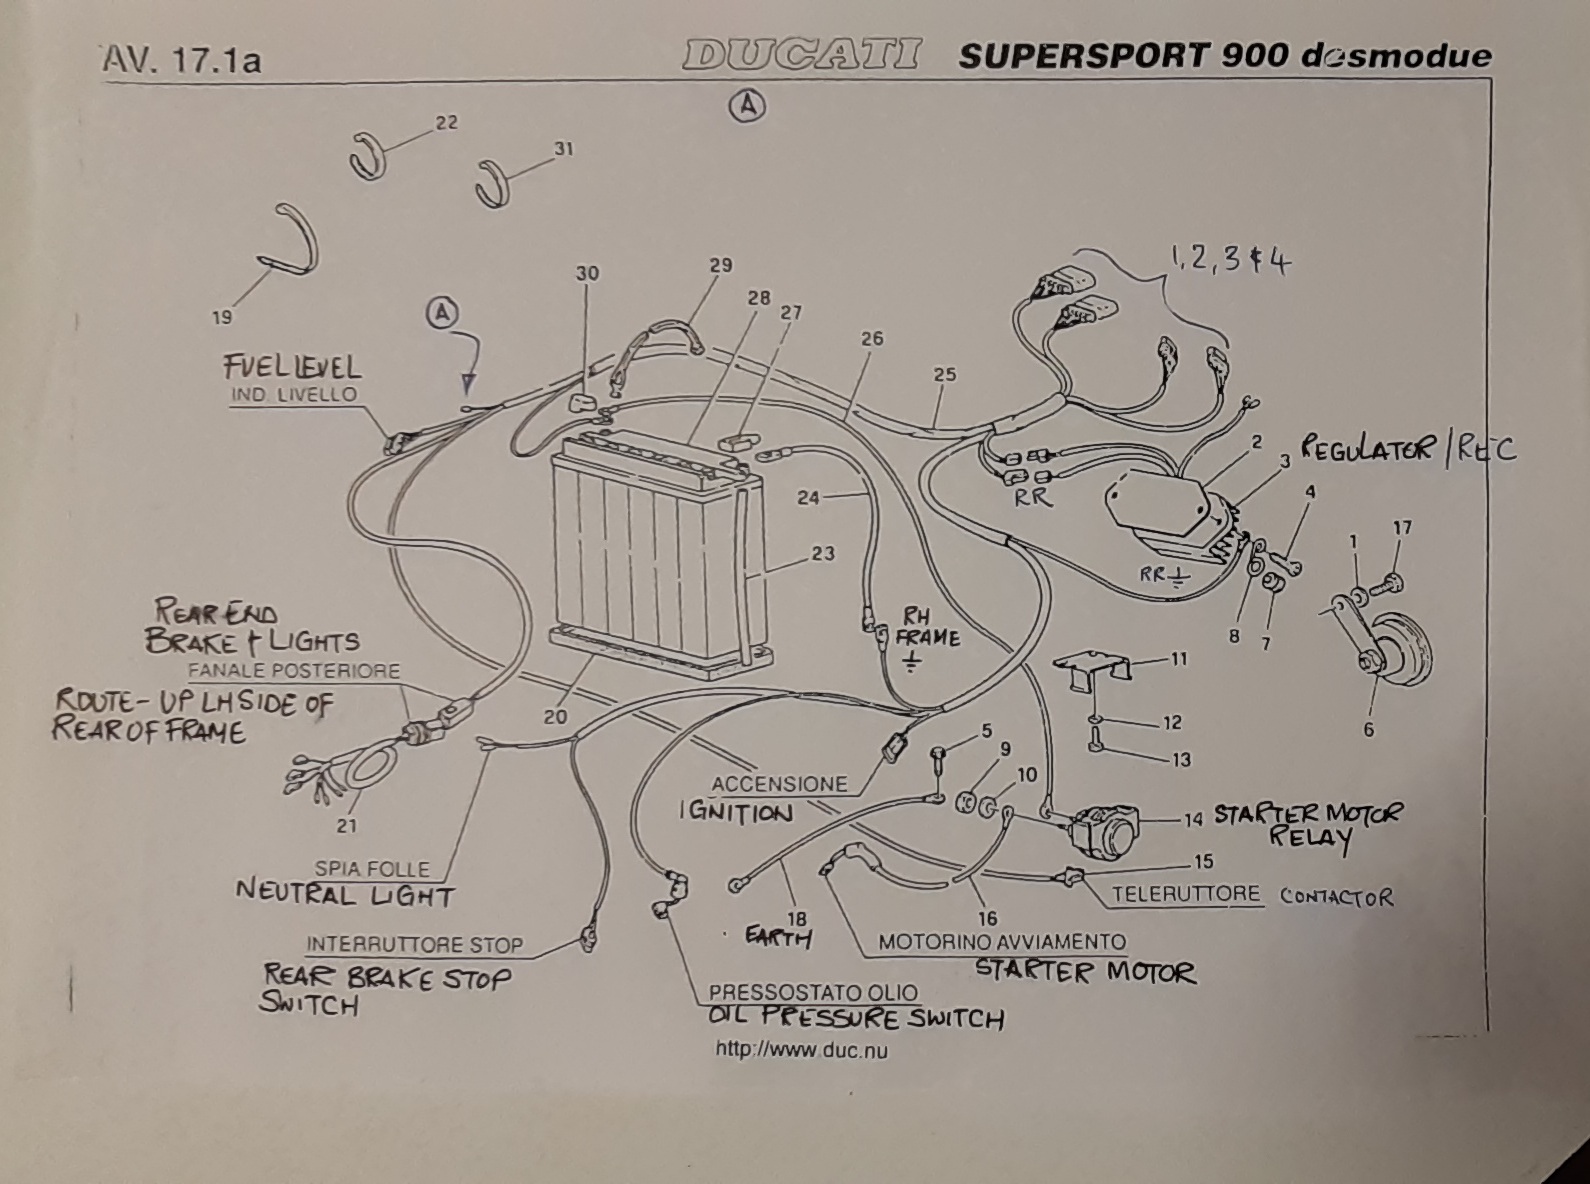 AV. 17.1a
DUCATI SUPERSPORT 900 desmodue
A
22
31
19
30
29
28
27
26
25
1, 2, 3 & 4
A
FUEL LEVEL
IND. LIVELLO
2
3 REGULATOR / REC
4
RR
24
23
RR
1
17
8
7
RH
FRAME
11
6
12
13
REAR END
BRAKE + LIGHTS
FANALE POSTERIORE
ROUTE - UP LH SIDE OF
REAR OF FRAME
20
21
5
9
10
ACCENSIONE
IGNITION
14 STARTER MOTOR
RELAY
15
TELERUTTORE CONTACTOR
SPIA FOLLE
NEUTRAL LIGHT
18
EARTH
16
INTERRUTTORE STOP
REAR BRAKE STOP
SWITCH
MOTORINO AVVIAMENTO
STARTER MOTOR
PRESSOSTATO OLIO
OIL PRESSURE SWITCH
http://www.duc.nu